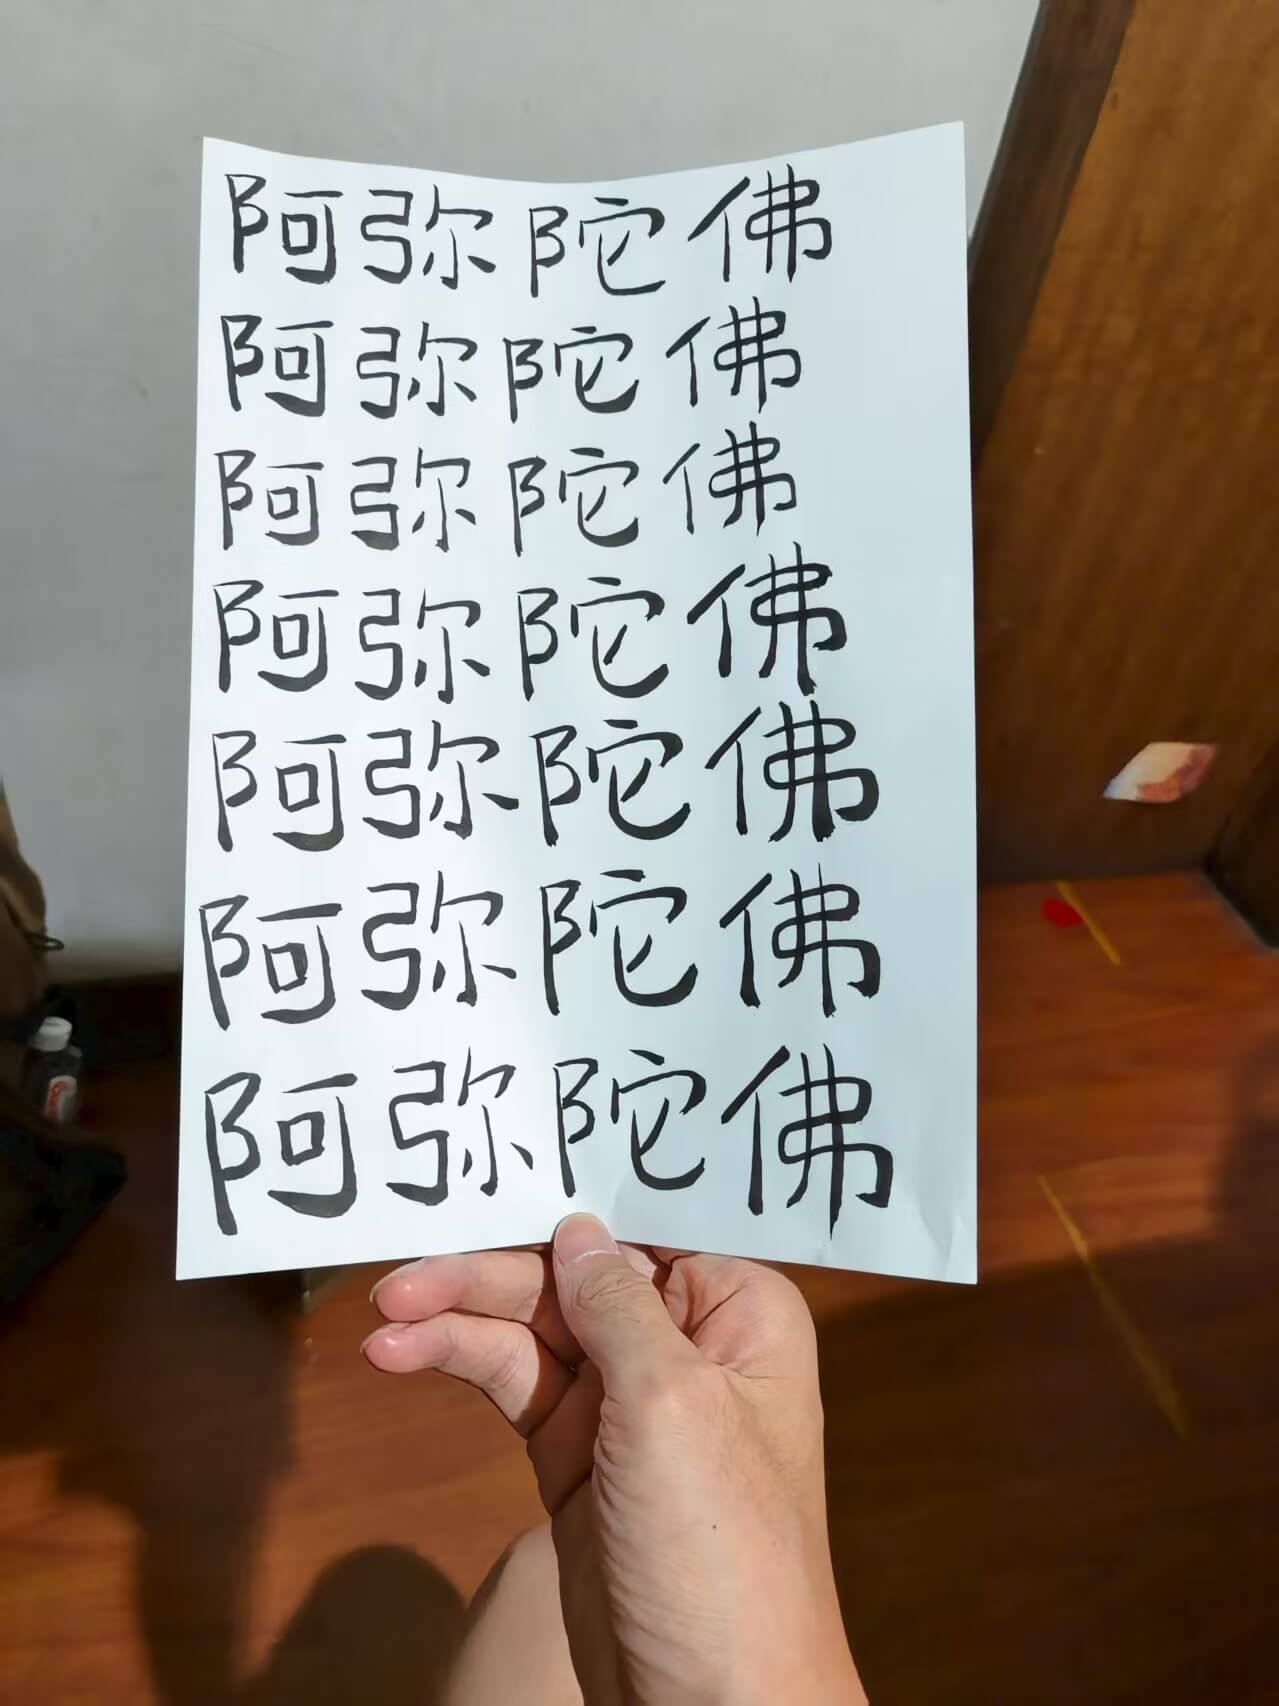 阿弥陀佛
阿弥陀佛
阿弥陀佛
阿弥陀佛
阿弥陀佛
阿弥陀佛
阿弥陀佛